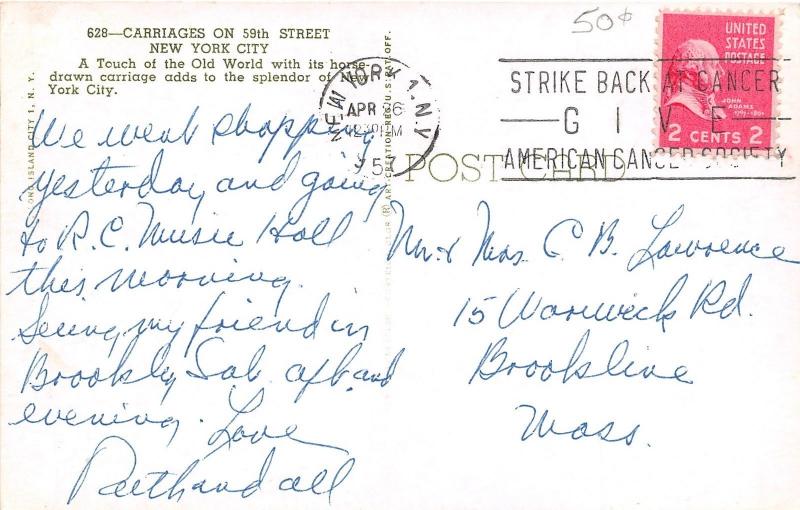 628—CARRIAGES ON 59th STREET
NEW YORK CITY
A Touch of the Old World with its horse-
drawn carriage adds to the splendor of New
York City.
50¢
UNITED
STATES
POSTAGE
JOHN
ADAMS
2 CENTS 2
NEW YORK 1, N.Y.
APR 6
1957
STRIKE BACK AT CANCER
GIVE
AMERICAN CANCER SOCIETY
POST CARD
We went shopping
yesterday and going
to R.C. Music Hall
this morning.
Seeing my friend in
Brooklyn Sat. aft. and
evening. Love
Ruth and all
Mr. & Mrs. C. B. Lawrence
15 Warwick Rd.
Brookline
Mass.